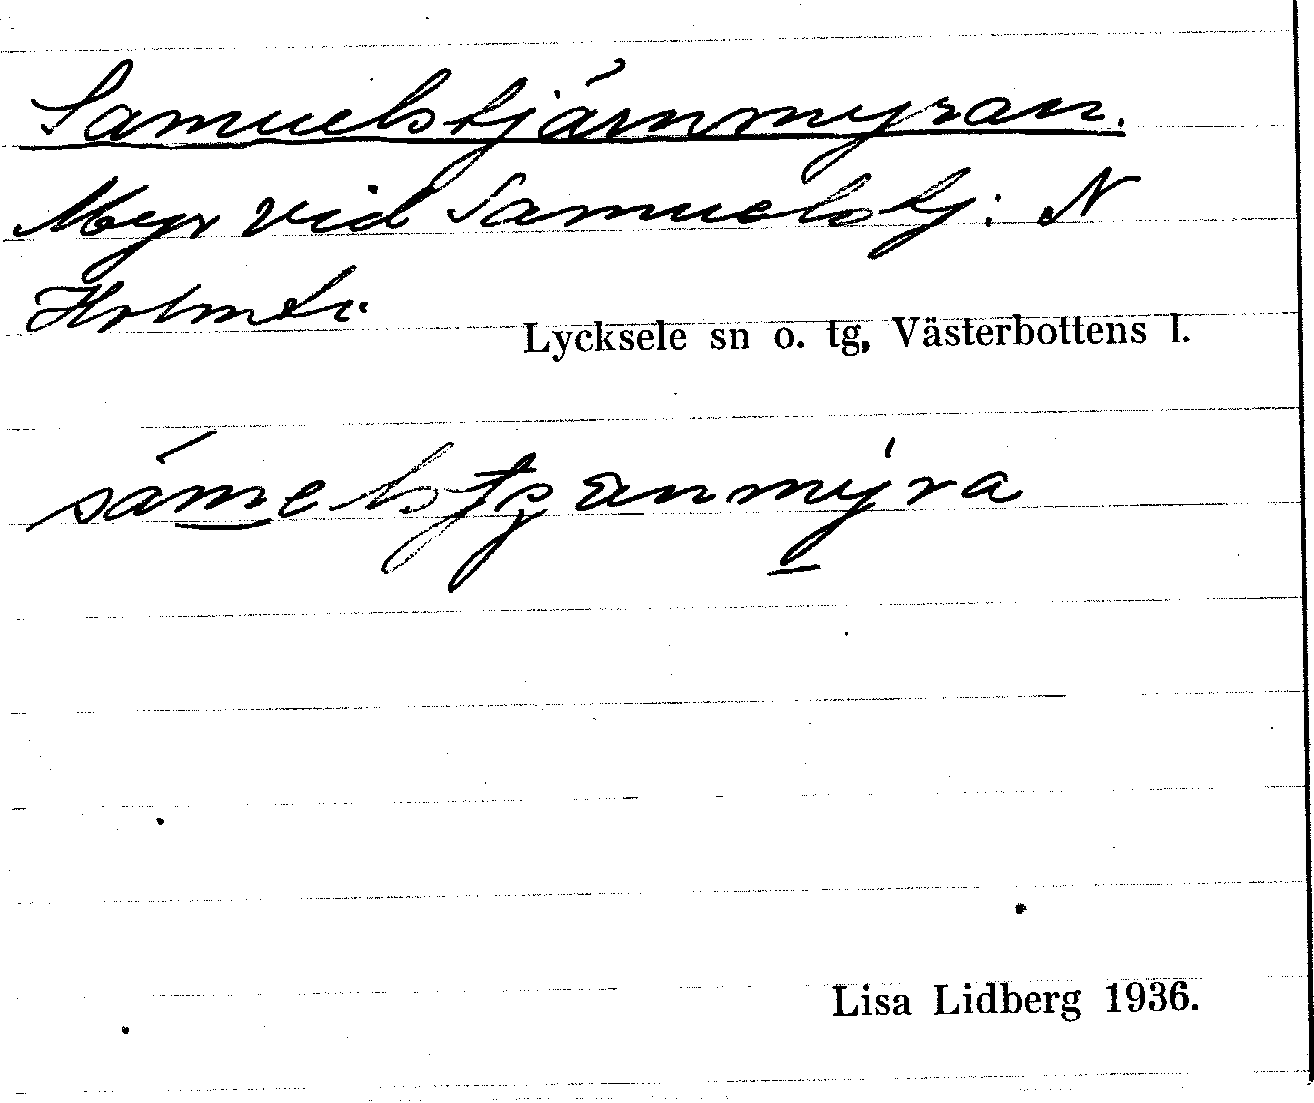 Samuelstjärnmyran.
Myr vid Samuelstj. N
Lycksele sn o. tg, Västerbottens l.
Lisa Lidberg 1936.